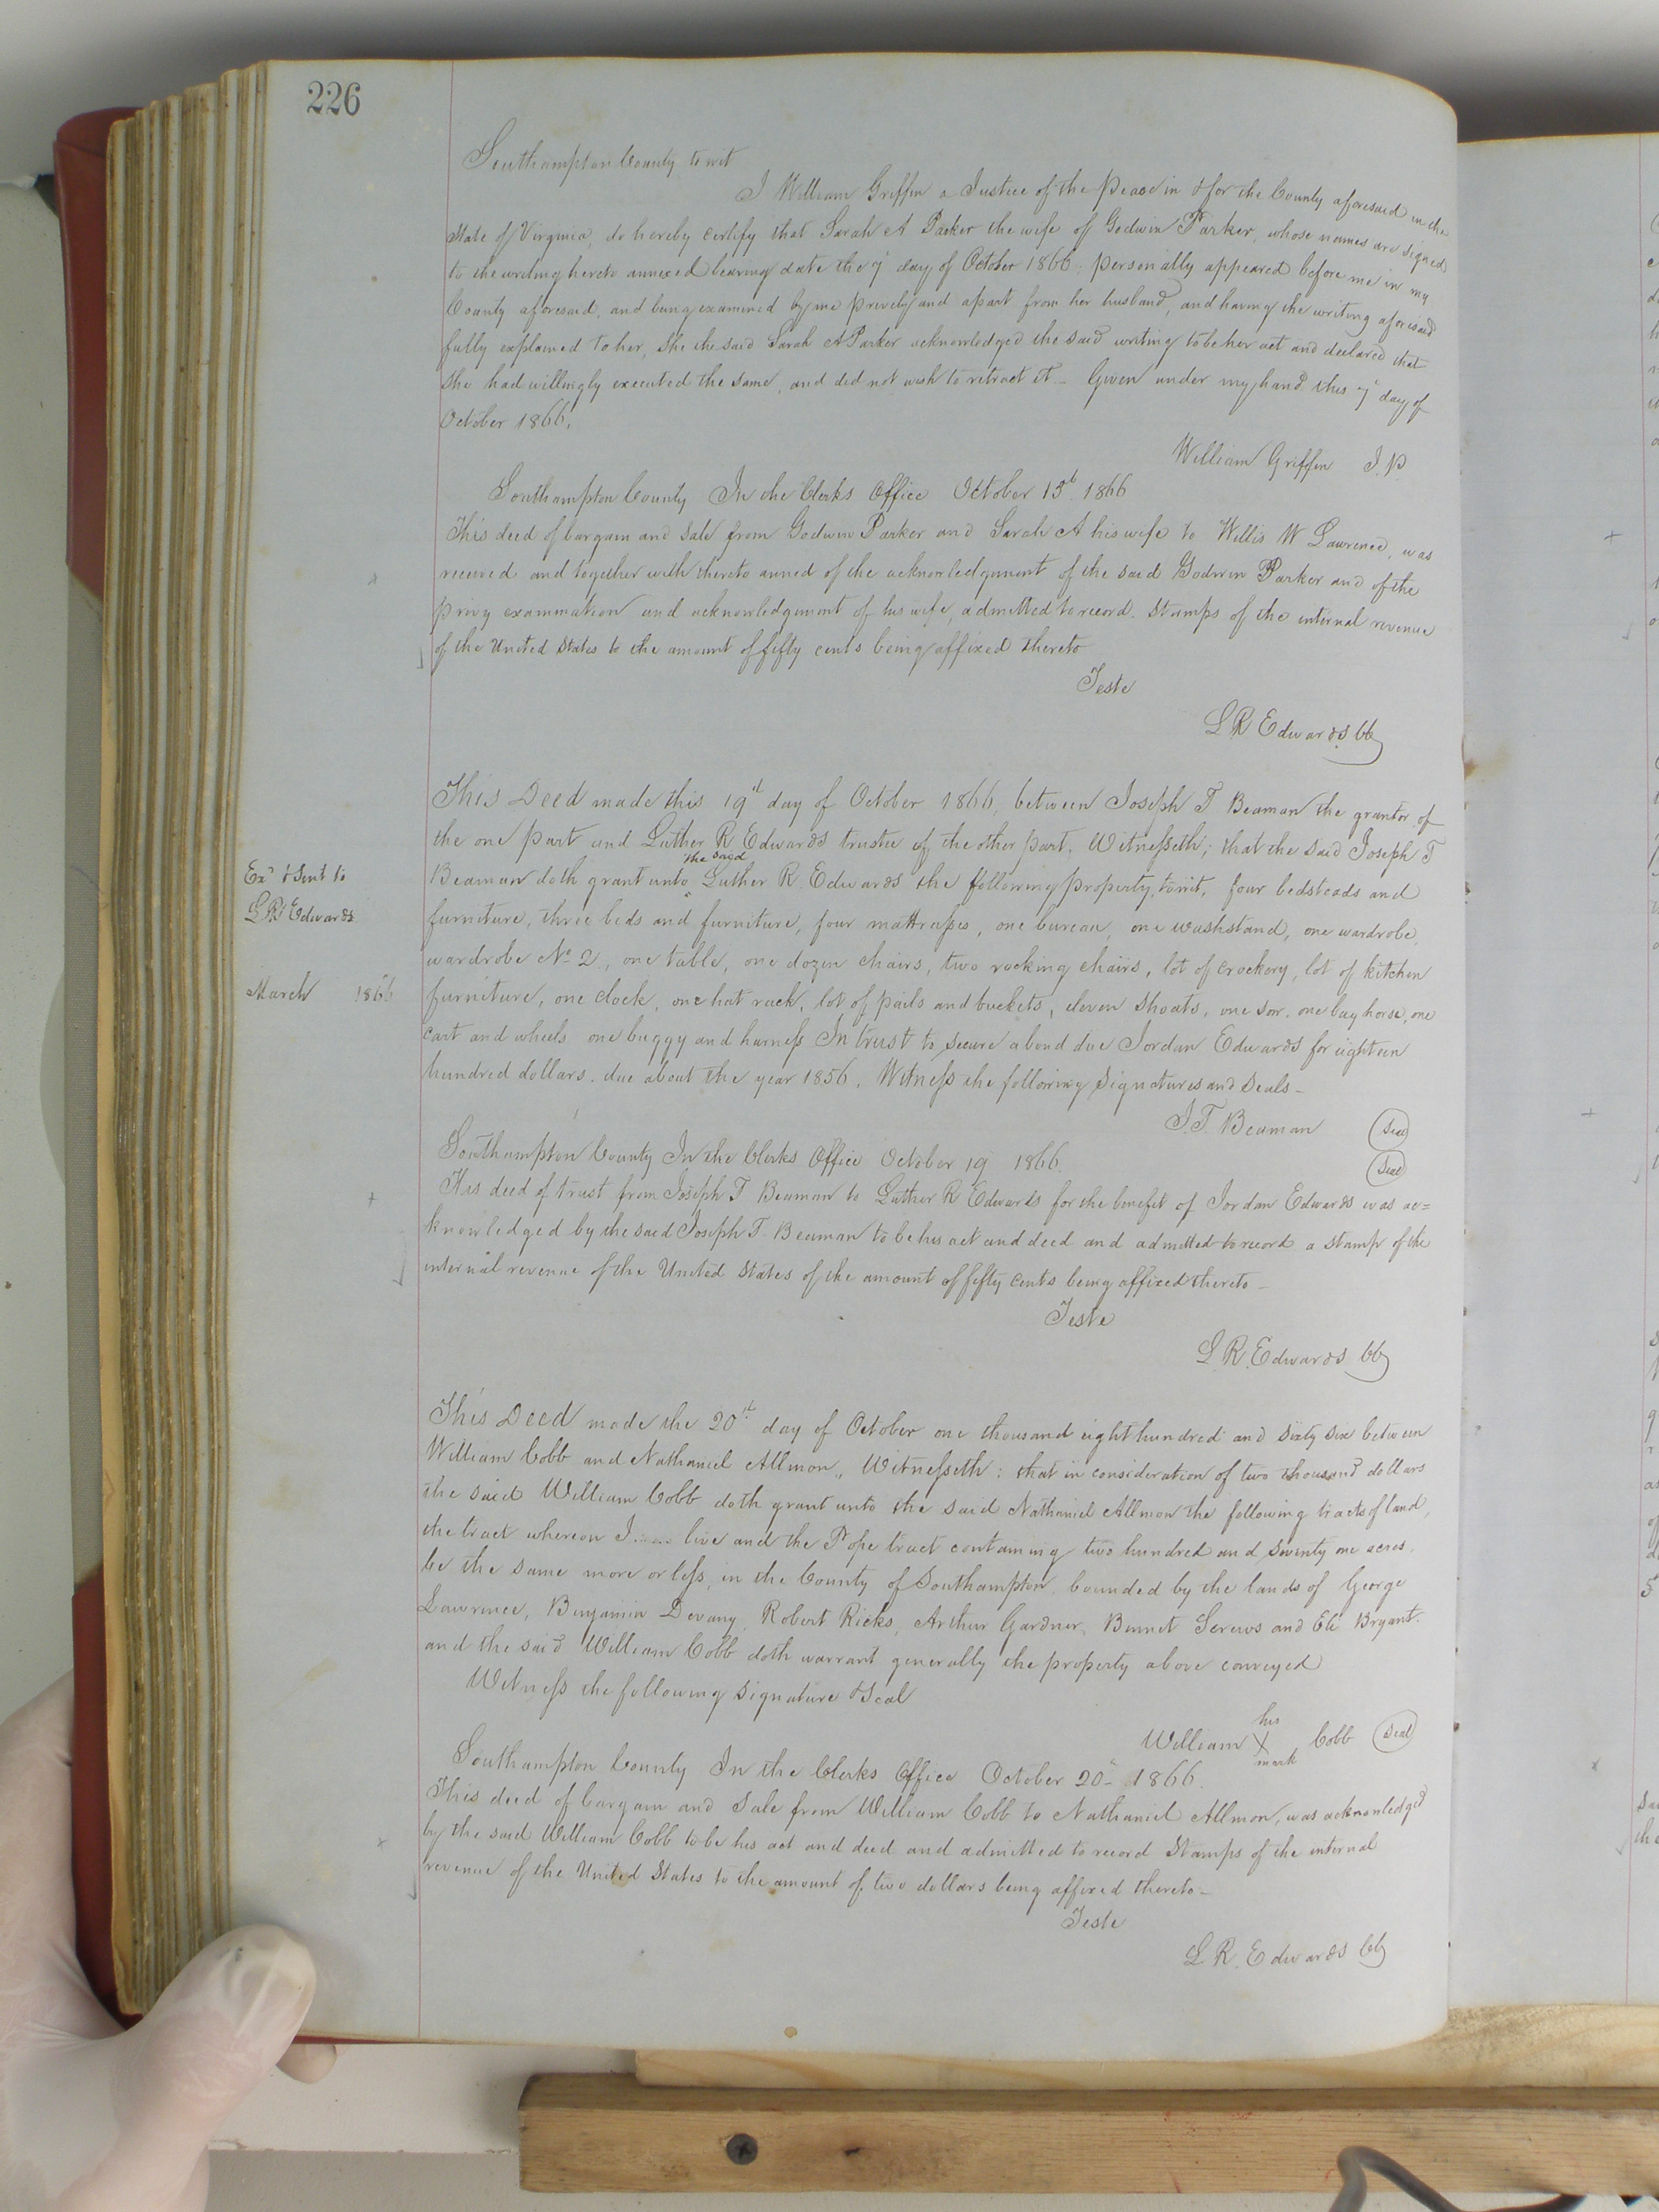 226
Southampton County to wit
I William Griffin a Justice of the Peace in & for the County aforesaid in the
State of Virginia, do hereby certify that Sarah A Parker the wife of Godwin Parker, whose names are signed
to the writing hereto annexed bearing date the 7 day of October 1866, personally appeared before me in my
County aforesaid, and being examined by me privily and apart from her husband, and having the writing aforesaid
fully explained to her, She the said Sarah A Parker acknowledged the said writing to be her act and declared that
She had willingly executed the same, and did not wish to retract it – Given under my hand this 7 day of
October 1866.
William Griffin J.P.
Southampton County In the Clerks Office October 15th 1866
This deed of bargain and Sale from Godwin Parker and Sarah A his wife to Willis W Lawrence, was
received and together with thereto anned of the acknowledgment of the said Godwin Parker and of the
privy examination and acknowledgement of his wife, admitted to record. Stamps of the internal revenue
of the United States to the amount of fifty cents being affixed thereto
Teste
L R Edwards CC
This Deed made this 19th day of October 1866, between Joseph T Beaman the grantor of
the one part and Luther R Edwards trustee of the other part, Witnesseth; that the said Joseph T
the said
Beaman doth grant unto Luther R. Edwards the following property, towit, four bedsteads and
furniture, three beds and furniture, four mattresses, one bureau, one washstand, one wardrobe,
wardrobe No 2, one table, one dozen chairs, two rocking chairs, lot of crockery, lot of kitchen
furniture, one clock, one hat rack, lot of pails and buckets, eleven Shoats, one sow, one bay horse, one
cart and wheels one buggy and harness In trust to secure a bond due Jordan Edwards for eighteen
hundred dollars. due about the year 1856. Witness the following Signatures and Seals –
Ex'd & Sent to
L R Edwards
March 1866
J. T. Beaman (Seal)
(Seal)
Southampton County In the Clerks Office October 19 1866.
This deed of trust from Joseph T Beaman to Luther R Edwards for the benefit of Jordan Edwards was ac=
knowledged by the said Joseph T. Beaman to be his act and deed and admitted to record a stamp of the
internal revenue of the United States of the amount of fifty cents being affixed thereto –
Teste
L. R. Edwards CC
This Deed made the 20th day of October one thousand eight hundred and sixty six between
William Cobb and Nathaniel Allmon, Witnesseth: that in consideration of two thousand dollars
the said William Cobb doth grant unto the said Nathaniel Allmon the following tracts of land,
the tract whereon I live and the Pope tract containing two hundred and seventy one acres.
be the same more or less, in the County of Southampton, bounded by the lands of George
Lawrence, Benjamin Devany, Robert Ricks, Arthur Gardner, Bennet Screws and Eli Bryant.
and the said William Cobb doth warrant generally the property above conveyed
Witness the following Signature & Seal
his
William X Cobb (Seal)
mark
Southampton County In the Clerks Office October 20 – 1866.
This deed of bargain and Sale from William Cobb to Nathaniel Allmon, was acknowledged
by the said William Cobb to be his act and deed and admitted to record Stamps of the internal
revenue of the United States to the amount of two dollars being affixed thereto –
Teste
L R. Edwards CC